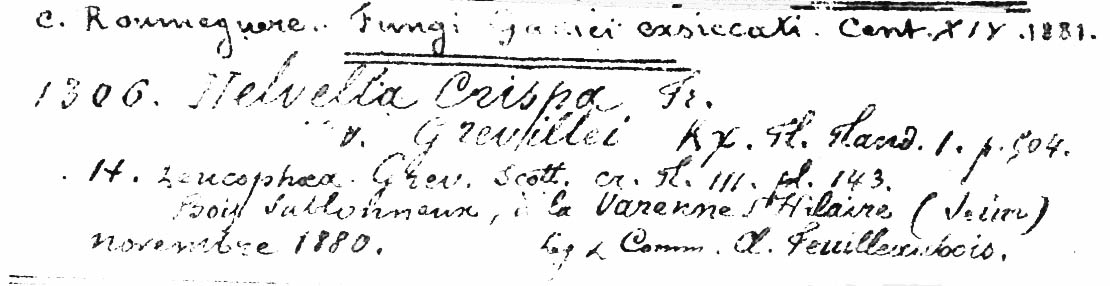 C. Roumeguere. Fungi Gallici exsiccati. Cent. XIV. 1881.
1306. Helvella Crispa Fr.
v. Grevillei Kx. Fl. Fland. 1. p. 504.
H. Leucophæa. Grev. Scott. cr. Fl. III. pl. 143.
Bois Sablonneux, à la Varenne St Hilaire (Seine)
novembre 1880. Leg & Comm. A. Feuilleaubois.